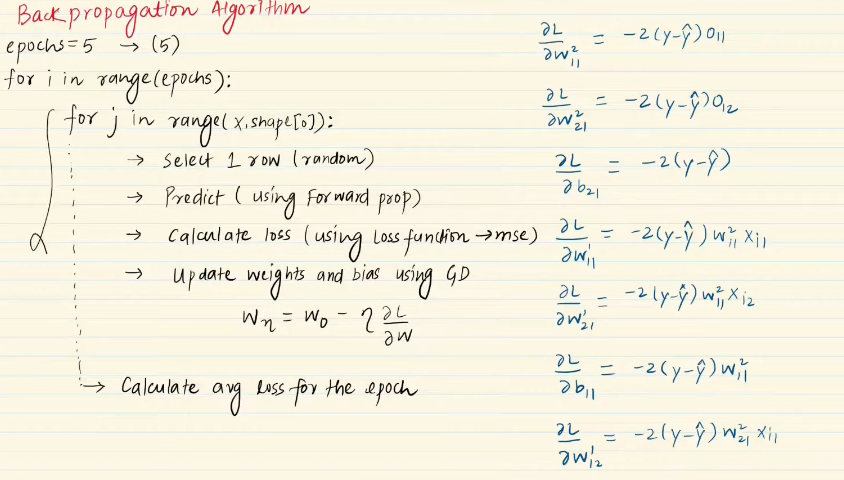 Backpropagation Algorithm
epochs=5 → (5)
for i in range(epochs):
for j in range(X.shape[0]):
→ Select 1 row (random)
→ Predict (using forward prop)
→ Calculate loss (using loss function → mse)
→ Update weights and bias using GD
Wₙ = W₀ - η ∂L/∂W
→ Calculate avg loss for the epoch
∂L/∂W²₁₁ = -2(y-ŷ)O₁₁
∂L/∂W²₂₁ = -2(y-ŷ)O₁₂
∂L/∂b₂₁ = -2(y-ŷ)
∂L/∂W¹₁₁ = -2(y-ŷ) W²₁₁ Xᵢ₁
∂L/∂W¹₂₁ = -2(y-ŷ) W²₁₁ Xᵢ₂
∂L/∂b₁₁ = -2(y-ŷ) W²₁₁
∂L/∂W¹₁₂ = -2(y-ŷ) W²₂₁ Xᵢ₁